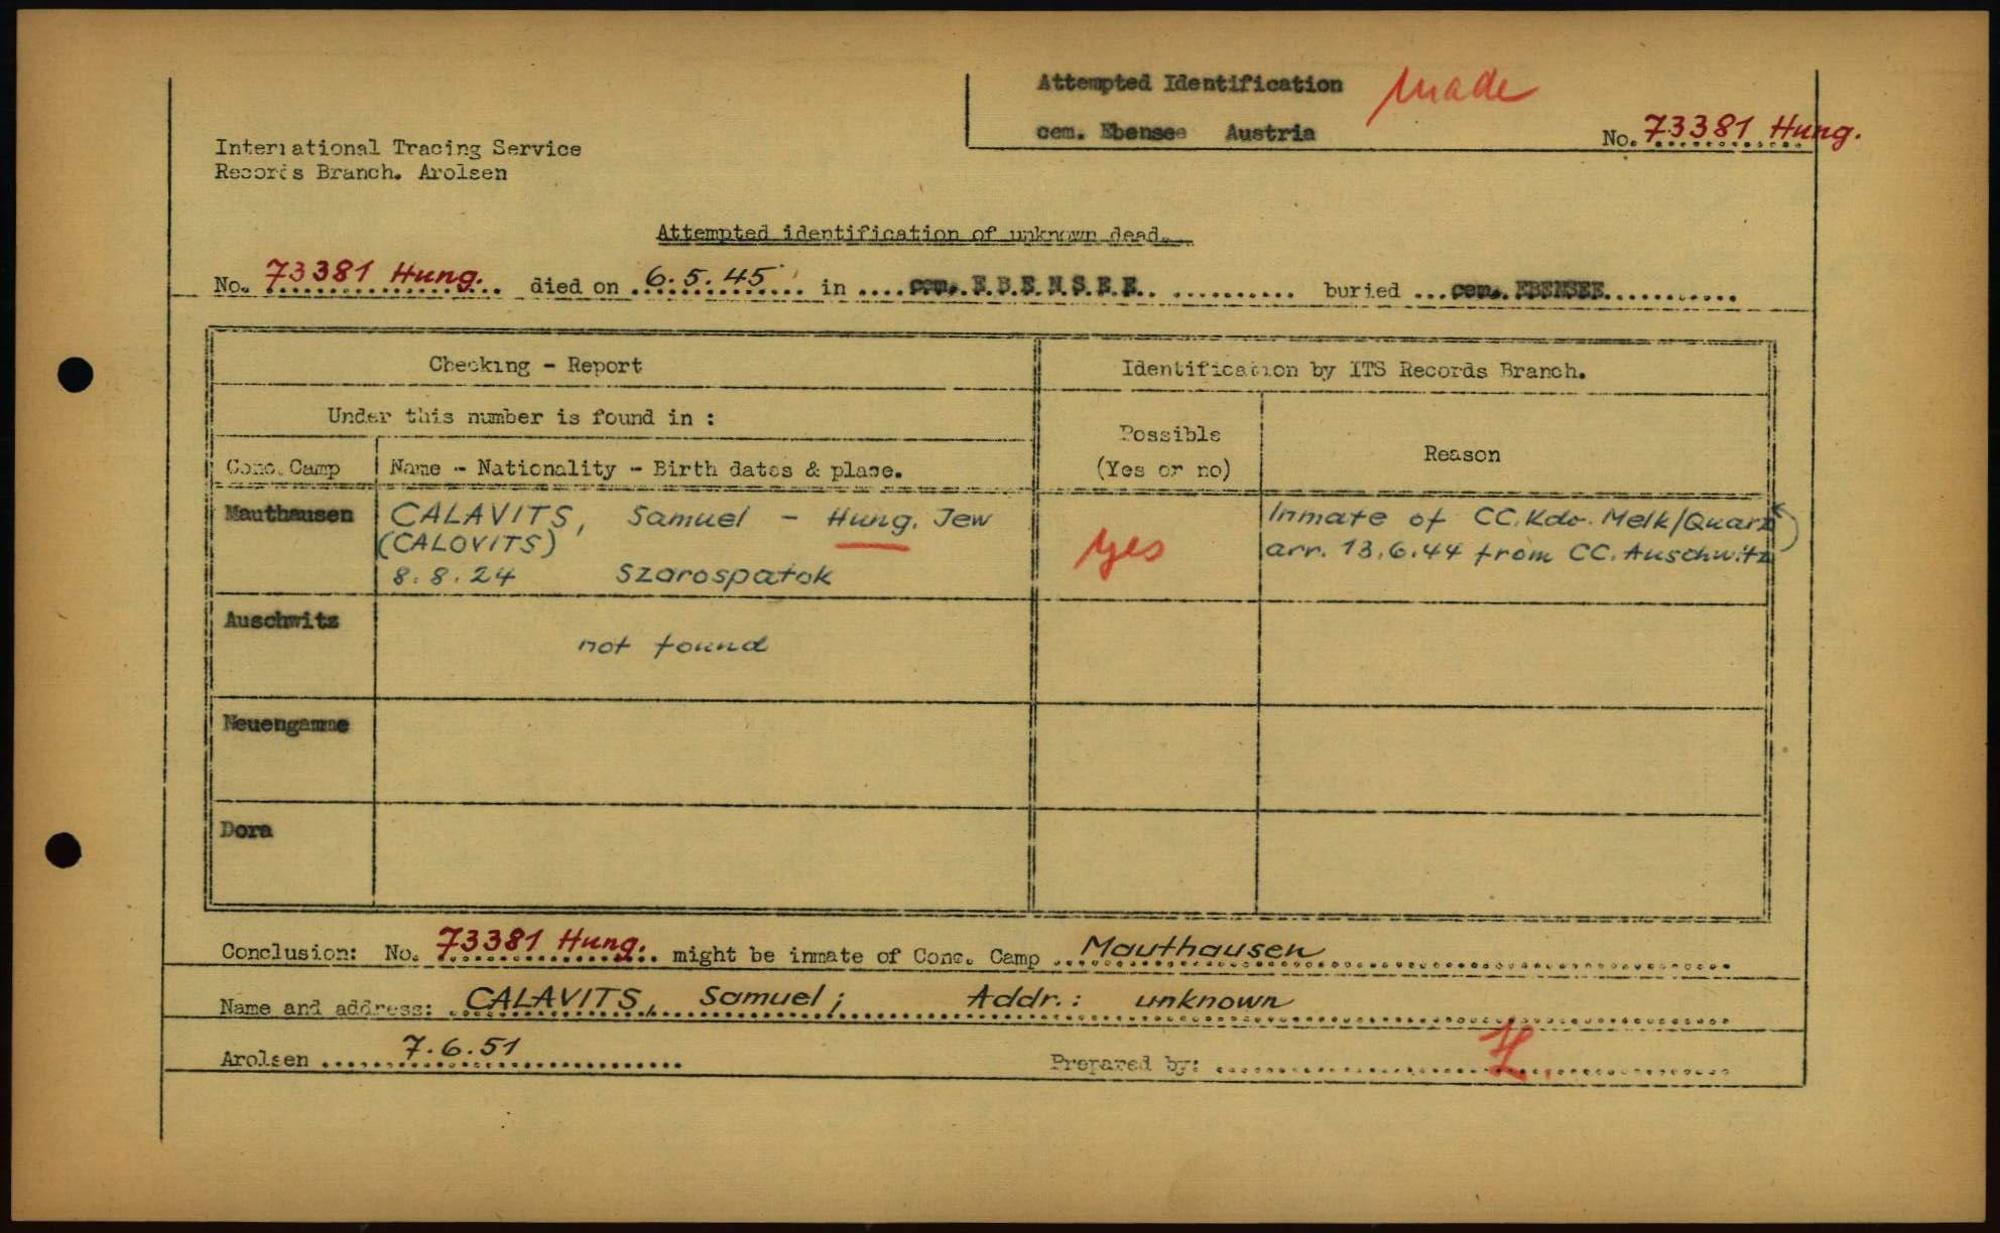 Attempted Identification made
cem. Ebensee Austria
No. 73381 Hung.
International Tracing Service
Records Branch. Arolsen
Attempted identification of unknown dead.
No. 73381 Hung. died on 6.5.45 in cem. E.B.E.N.S.E.E. buried cem. EBENSEE
Checking - Report
Identification by ITS Records Branch.
Under this number is found in :
Possible
(Yes or no)
Reason
Conc. Camp
Name - Nationality - Birth dates & place.
Mauthausen
CALAVITS, Samuel - Hung. Jew
(CALOVITS)
8.8.24 Szarospatok
yes
Inmate of CC.Kdo. Melk/Quarz
arr. 13.6.44 from CC. Auschwitz
Auschwitz
not found
Neuengamme
Dora
Conclusion: No. 73381 Hung. might be inmate of Conc. Camp Mauthausen
Name and address: CALAVITS, Samuel; Addr.: unknown
Arolsen 7.6.51
Prepared by: